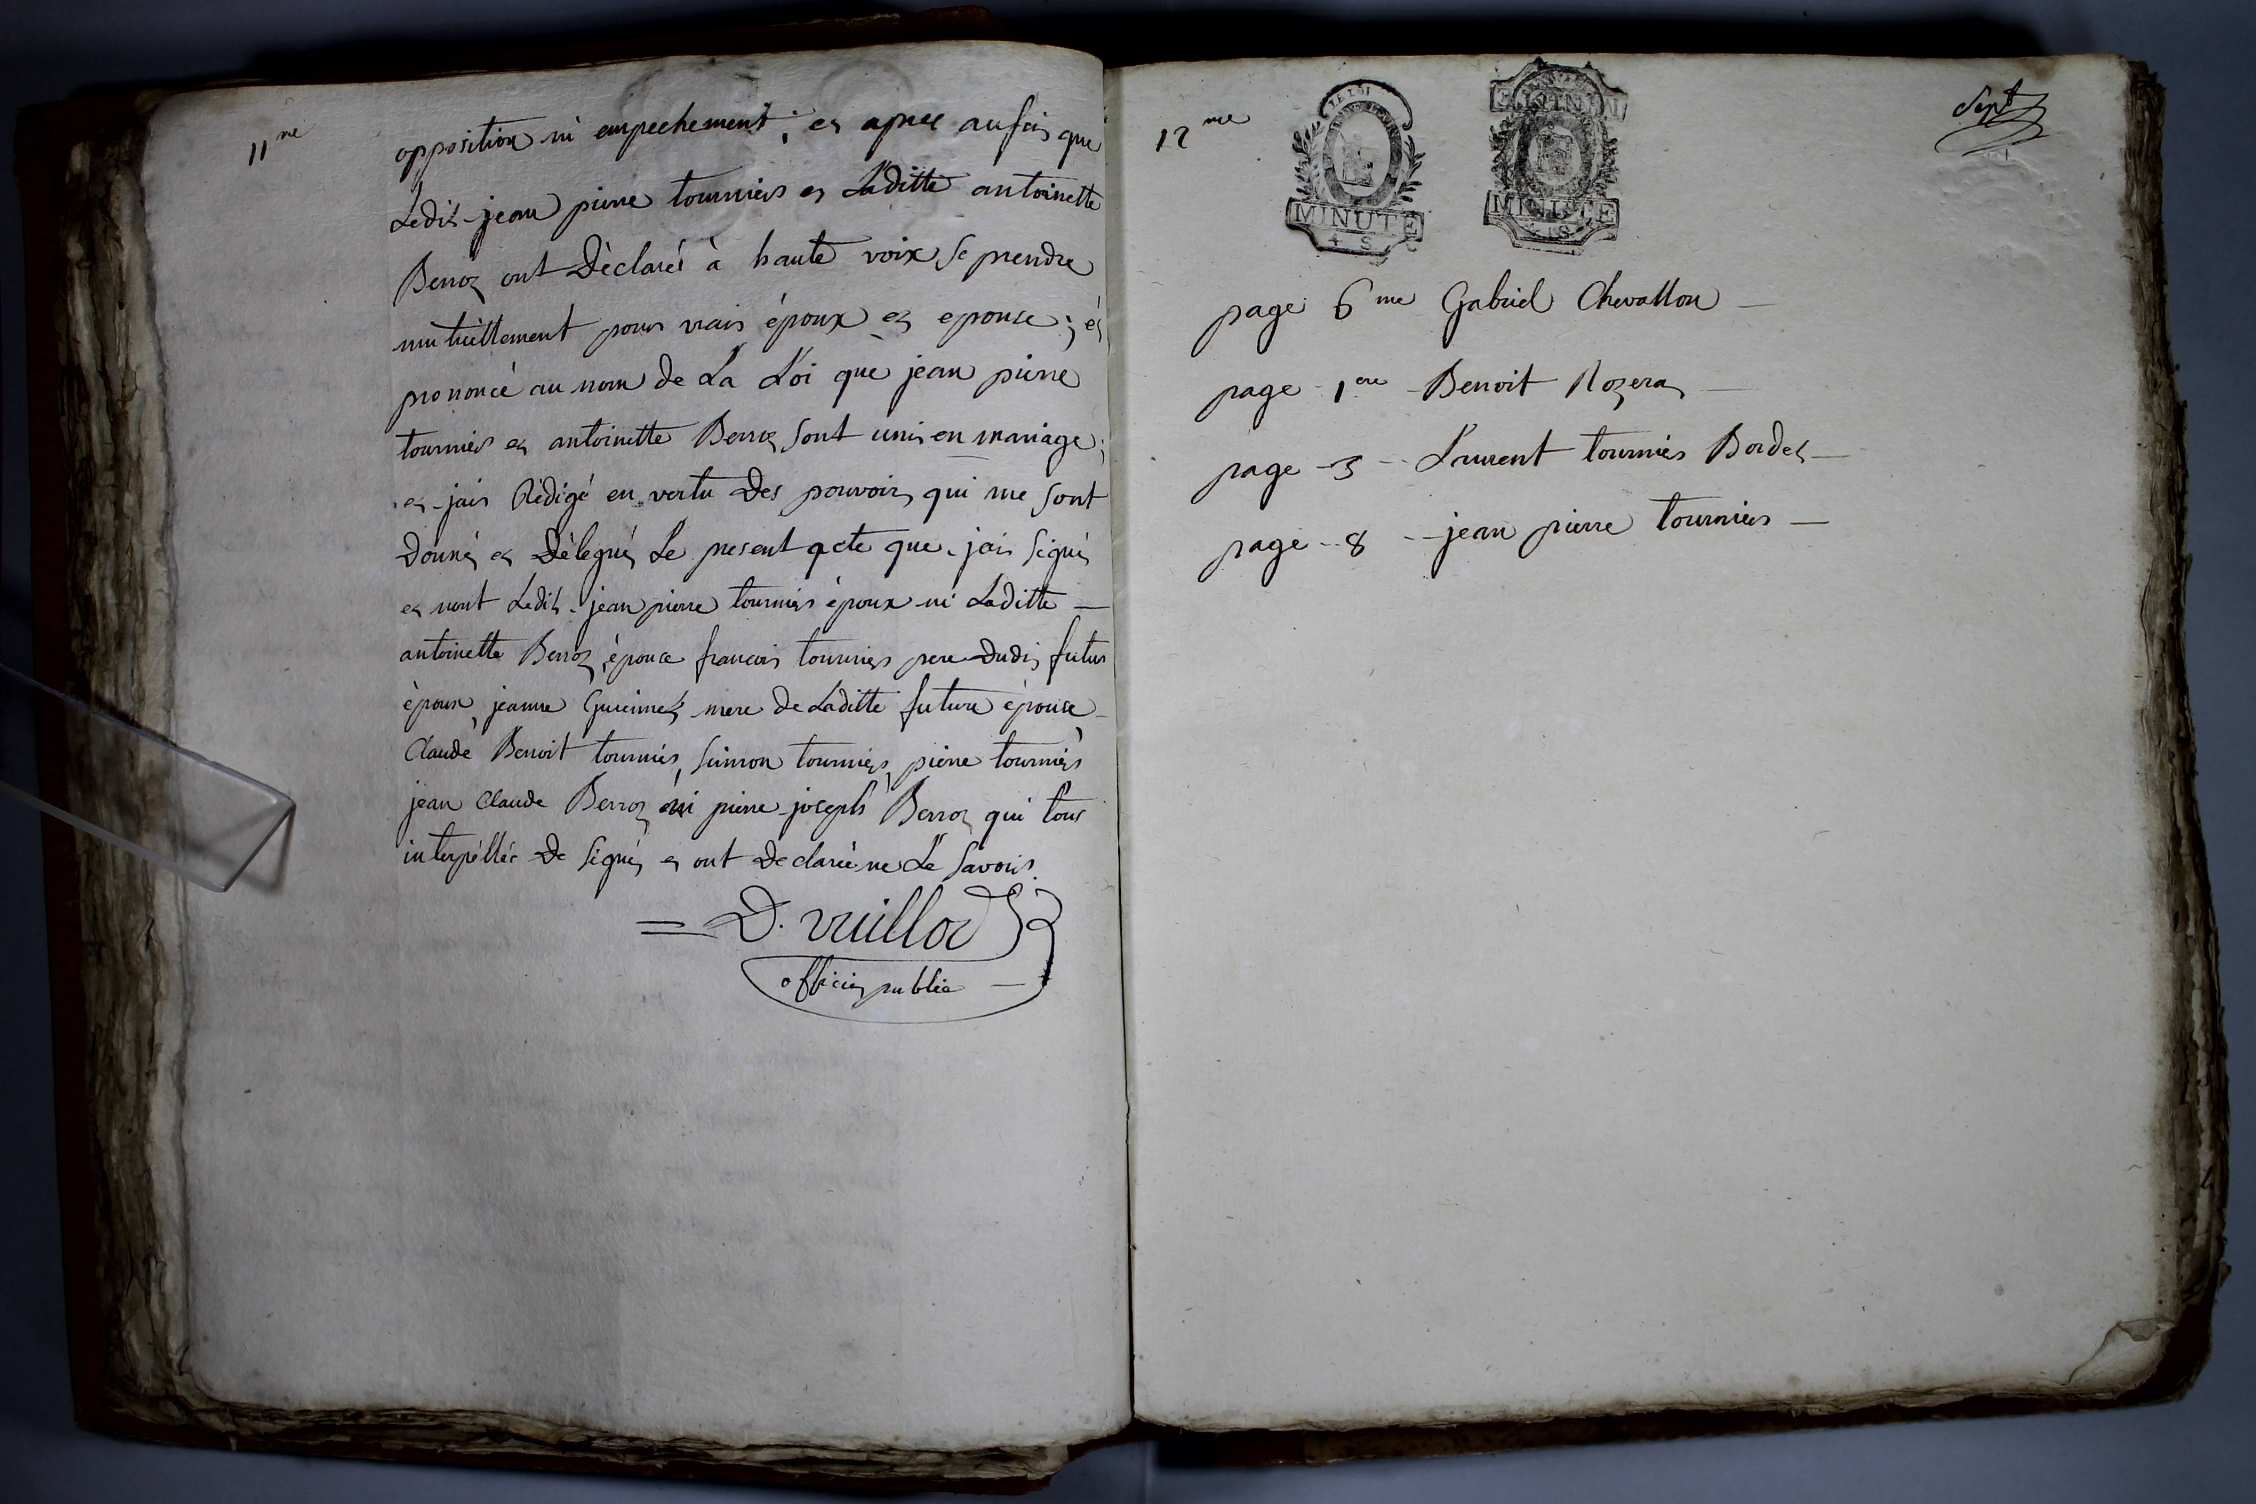 11me
opposition ni empechement ; et apres aufois que
Ledit jean pierre tourniers et Laditte antoinette
Berroz ont Déclarés à haute voix se prendre
mutuéllement pour vrais époux et epouse ; et
prononcé au nom de La Loi que jean pierre
tournier et antoinette Berroz sont unis en mariage ;
et jais Rédigé en vertu des pouvoirs qui me sont
Donnés et Délegués Le present acte que jais signé
et nont Ledit jean pierre tournier époux ni Laditte —
antoinette Berroz épouse francois tournier pere dudit futur
époux, jeanne mere de Laditte future épouse
Claude Benoit tournier, simon tournier, pierre tourniér
jean Claude Berroz ni pierre joseph Berroz qui tous
interpéllés de signés et ont declarée ne Le savoir.
= D. vuilloz
officier public —
12me
LA LOI
MINUTE
4 S
MINUTE
4 S
Sept
page 6me Gabriel Chevallon —
page 1ere Benoit Rozera —
page - 3 - Laurent tournier Bordet —
page - 8 - jean pierre tourniers —